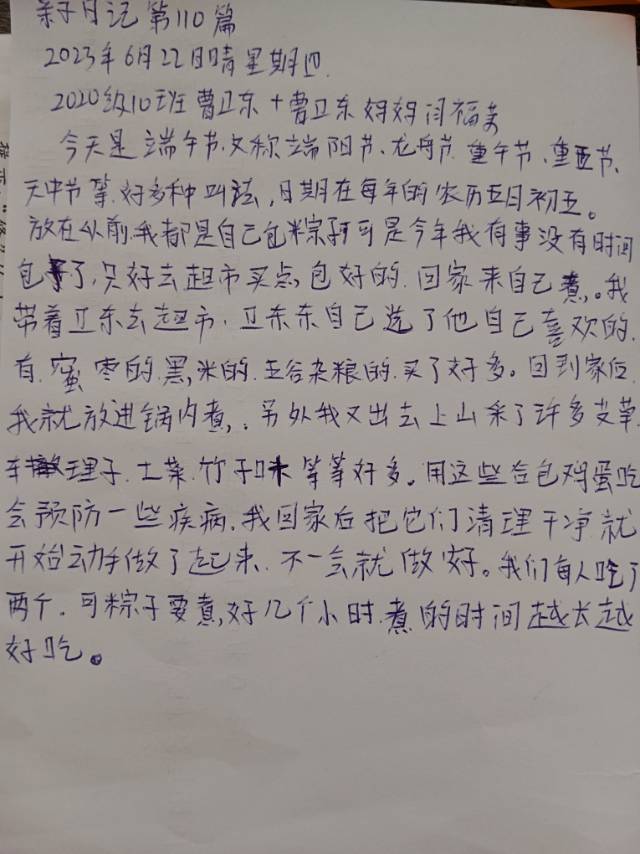 亲子日记第110篇
2023年6月22日晴星期四
2020级10班曹卫东+曹卫东妈妈闫福美
今天是端午节.又称端阳节、龙舟节.重午节、重五节、
天中节等.好多种叫法,日期在每年的农历五月初五。
放在从前.我都是自己包米粽子可是今年我有事没有时间
包了,只好去超市买点,包好的.回家来自己煮,。我
带着卫东去超市.卫东东自己选了他自己喜欢的.
有.蜜枣的.黑,米的.五谷杂粮的.买了好多。回到家后.
我就放进锅内煮,.另外我又出去上山采了许多艾草.
车理子.土菜.竹子叶等等好多。用这些合包鸡蛋吃
会预防一些疾病.我回家后把它们清理干净就
开始动手做了起来.不一会就做好。我们每人吃了
两个.可粽子要煮,好几个小时.煮的时间越长越
好吃。